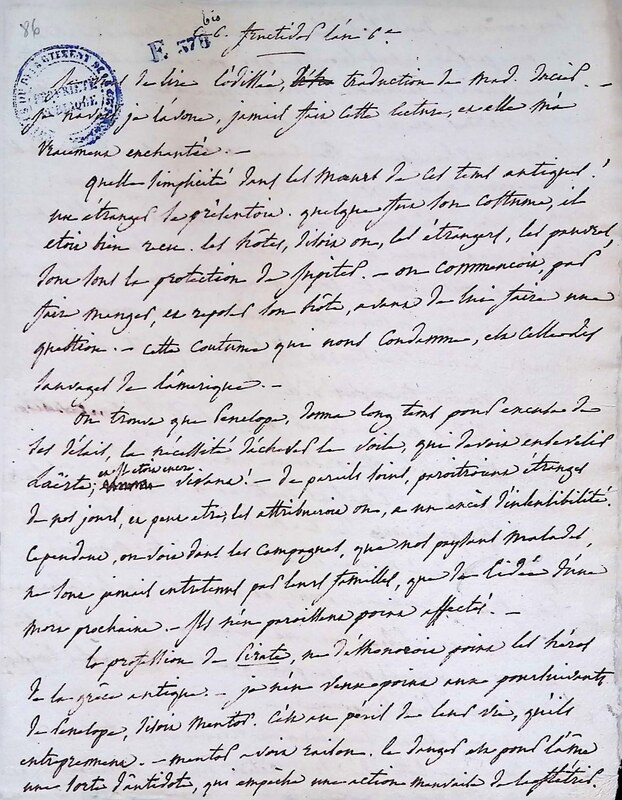 86
bis
F 378
6. fructidor l'an 6e
PROPRIÉTÉ
PUBLIQUE
de lire l'odissée, traduction de mad. dacier. –
je n'avois, je l'avoue, jamais fait cette lecture, et elle m'a
vraiment enchantée. –
quelle simplicité dans les mœurs de ces tems antiques!
un étranger se présentoit. quelque fut son costume, il
etoit bien recu. les hôtes, disoit on, les étrangers, les pauvres,
sont sous la protection de Jupiter. – on commencoit, par
faire manger, et reposer son hôte, avant de lui faire une
question. – cette coutume qui nous condamne, est celle des
sauvages de l'amérique. –
On trouve que Penelope, donne long tems pour excuse de
ses délais, la nécessité d'achever le voile, qui devoit ensevelir
Laërte; et il étoit encor
vivant! – de pareils soins, paroitroient étranges
de nos jours, et peut etre, les attribueroit on, a un excès d'insensibilité.
Cependant, on voit dans les campagnes, que nos paysans malades,
ne sont jamais entretenus par leurs familles, que de l'idée d'une
mort prochaine. – Ils n'en paroissent point affectés. –
la profession de Pirate, ne déshonoroit point les héros
de la grèce antique. – je n'en veux point aux poursuivants
de Penelope, disoit mentor. C'est au péril de leur vie, qu'ils
entreprennent. – mentor avoit raison. le danger est pour l'âme
une sorte d'antidote, qui empêche une action mauvaise de la flétrir.